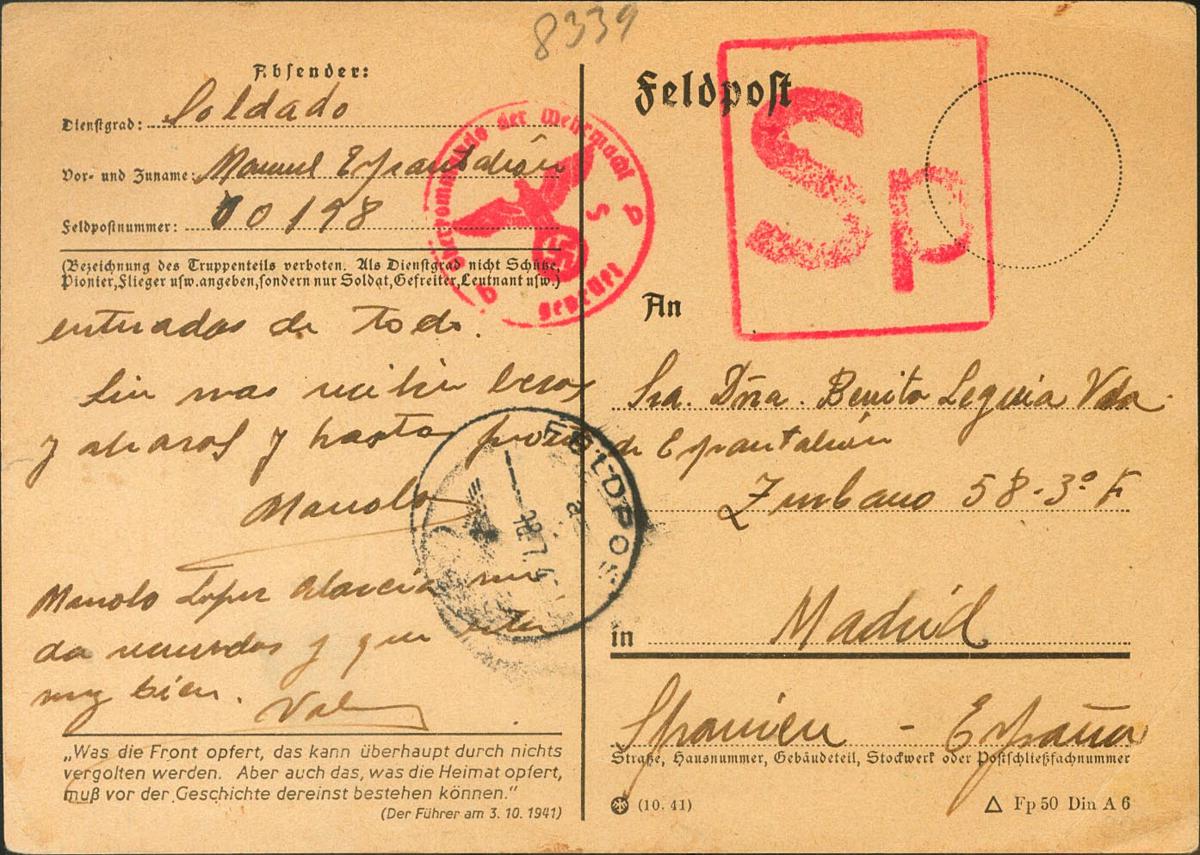 8339
Absender:
Dienstgrad: Soldado
Vor- und Zuname: Manuel Espantaleón
Feldpostnummer: 00198
(Bezeichnung des Truppenteils verboten. Als Dienstgrad nicht Schütze,
Pionier, Flieger usw. angeben, sondern nur Soldat, Gefreiter, Leutnant usw.)
entradas de todo.
Sin mas reciben besos
y abrazos y hasta
Manolo
Manolo Lopez
da recuerdos y que
muy bien.
„Was die Front opfert, das kann überhaupt durch nichts
vergolten werden. Aber auch das, was die Heimat opfert,
muß vor der Geschichte dereinst bestehen können.“
(Der Führer am 3. 10. 1941)
Oberkommando der Wehrmacht
geprüft
b
b
FELDPOS
Feldpost
Sp
An
Sra. Dña. Benito Leguia Vda
de Espantaleón
Zurbano 58-3º
in Madrid
Spanien - España
Straße, Hausnummer, Gebäudeteil, Stockwerk oder Postschließfachnummer
(10. 41)
Fp 50 Din A 6